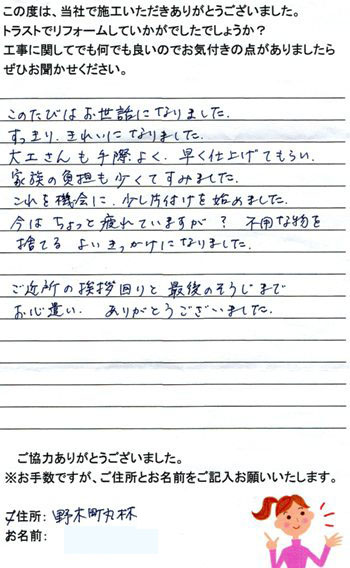 この度は、当社で施工いただきありがとうございました。
トラストでリフォームしていかがでしたでしょうか？
工事に関してでも何でも良いのでお気付きの点がありましたら
ぜひお聞かせください。
このたびはお世話になりました.
すっきり.きれいになりました.
大工さんも手際よく.早く仕上げてもらい.
家族の負担も少くてすみました.
これを機会に.少し片付けを始めました.
今はちょっと疲れていますが？不用な物を
捨てるよいきっかけになりました.
ご近所の挨拶回りと最後のそうじまで
お心遣い.ありがとうございました.
ご協力ありがとうございました。
※お手数ですが、ご住所とお名前をご記入お願いいたします。
ご住所：野木町丸林
お名前：